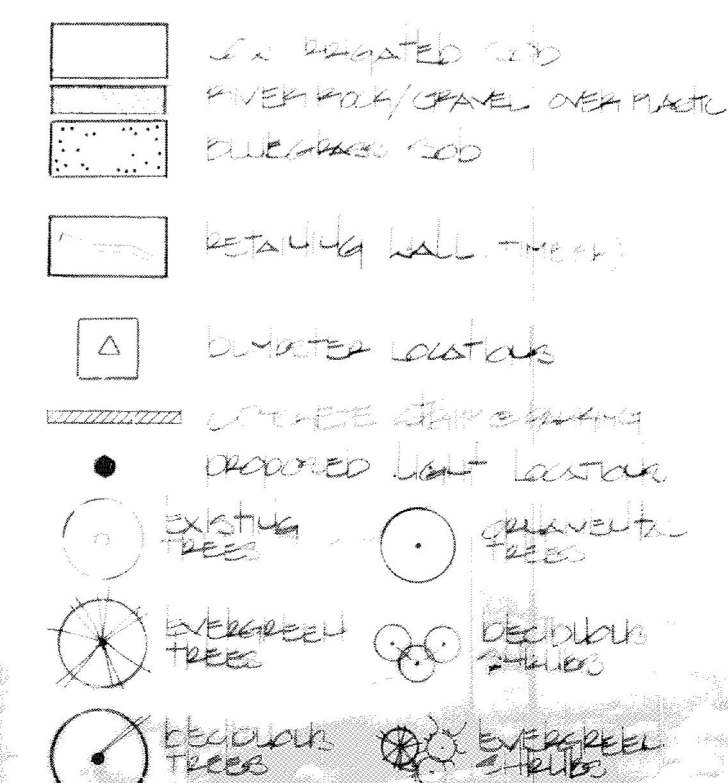 IRRIGATED SOD
RIVER ROCK/GRAVEL OVER PLASTIC
BLUEGRASS SOD
RETAINING WALL (TIMBER)
DUMPSTER LOCATIONS
CONCRETE
PROPOSED LIGHT LOCATIONS
EXISTING
TREES
ORNAMENTAL
TREES
EVERGREEN
TREES
DECIDUOUS
SHRUBS
DECIDUOUS
TREES
EVERGREEN
SHRUBS